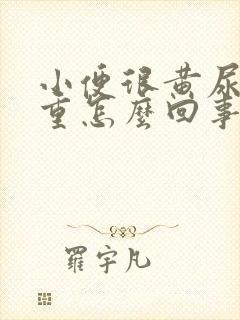 小便很黄尿
重怎麼回事
羅宇凡